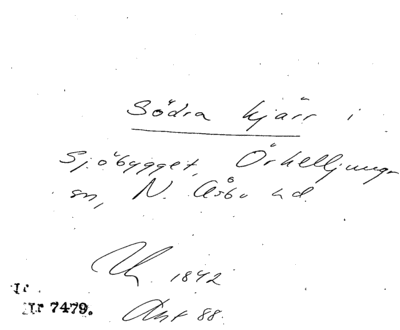 Södra kjärr i
Sjöbygget, Örkelljunga
sn, N. Åsbo hd.
1842
Nr 7479.
Akt 88.